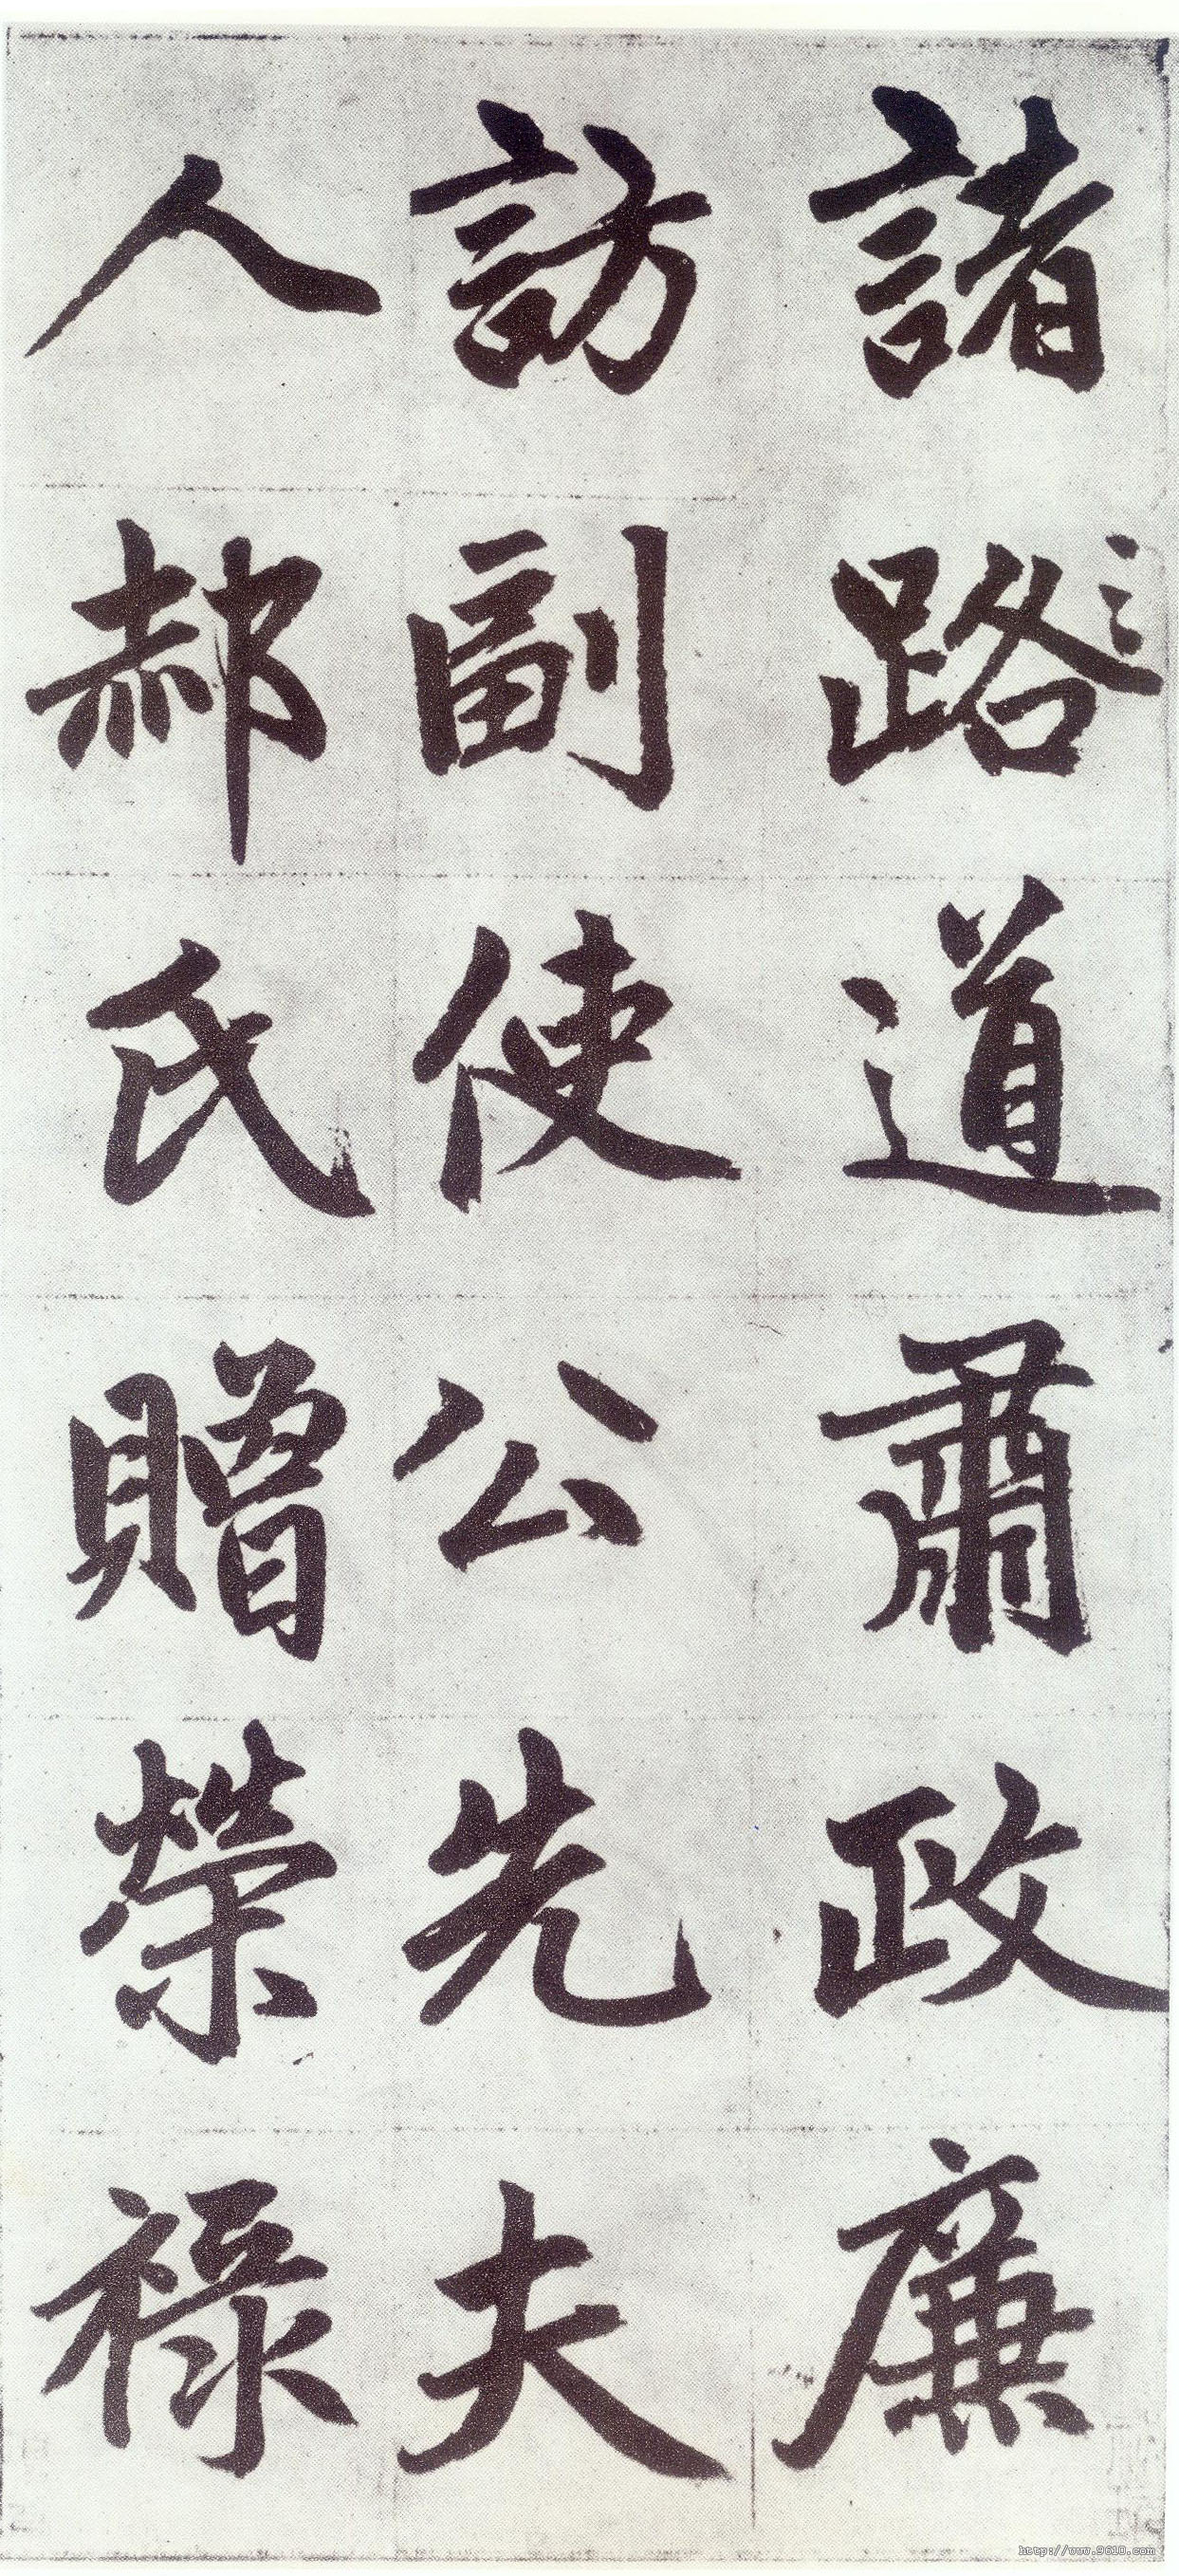 諸路道肅政廉
訪副使公先夫
人郝氏贈榮祿
http://www.9610.com